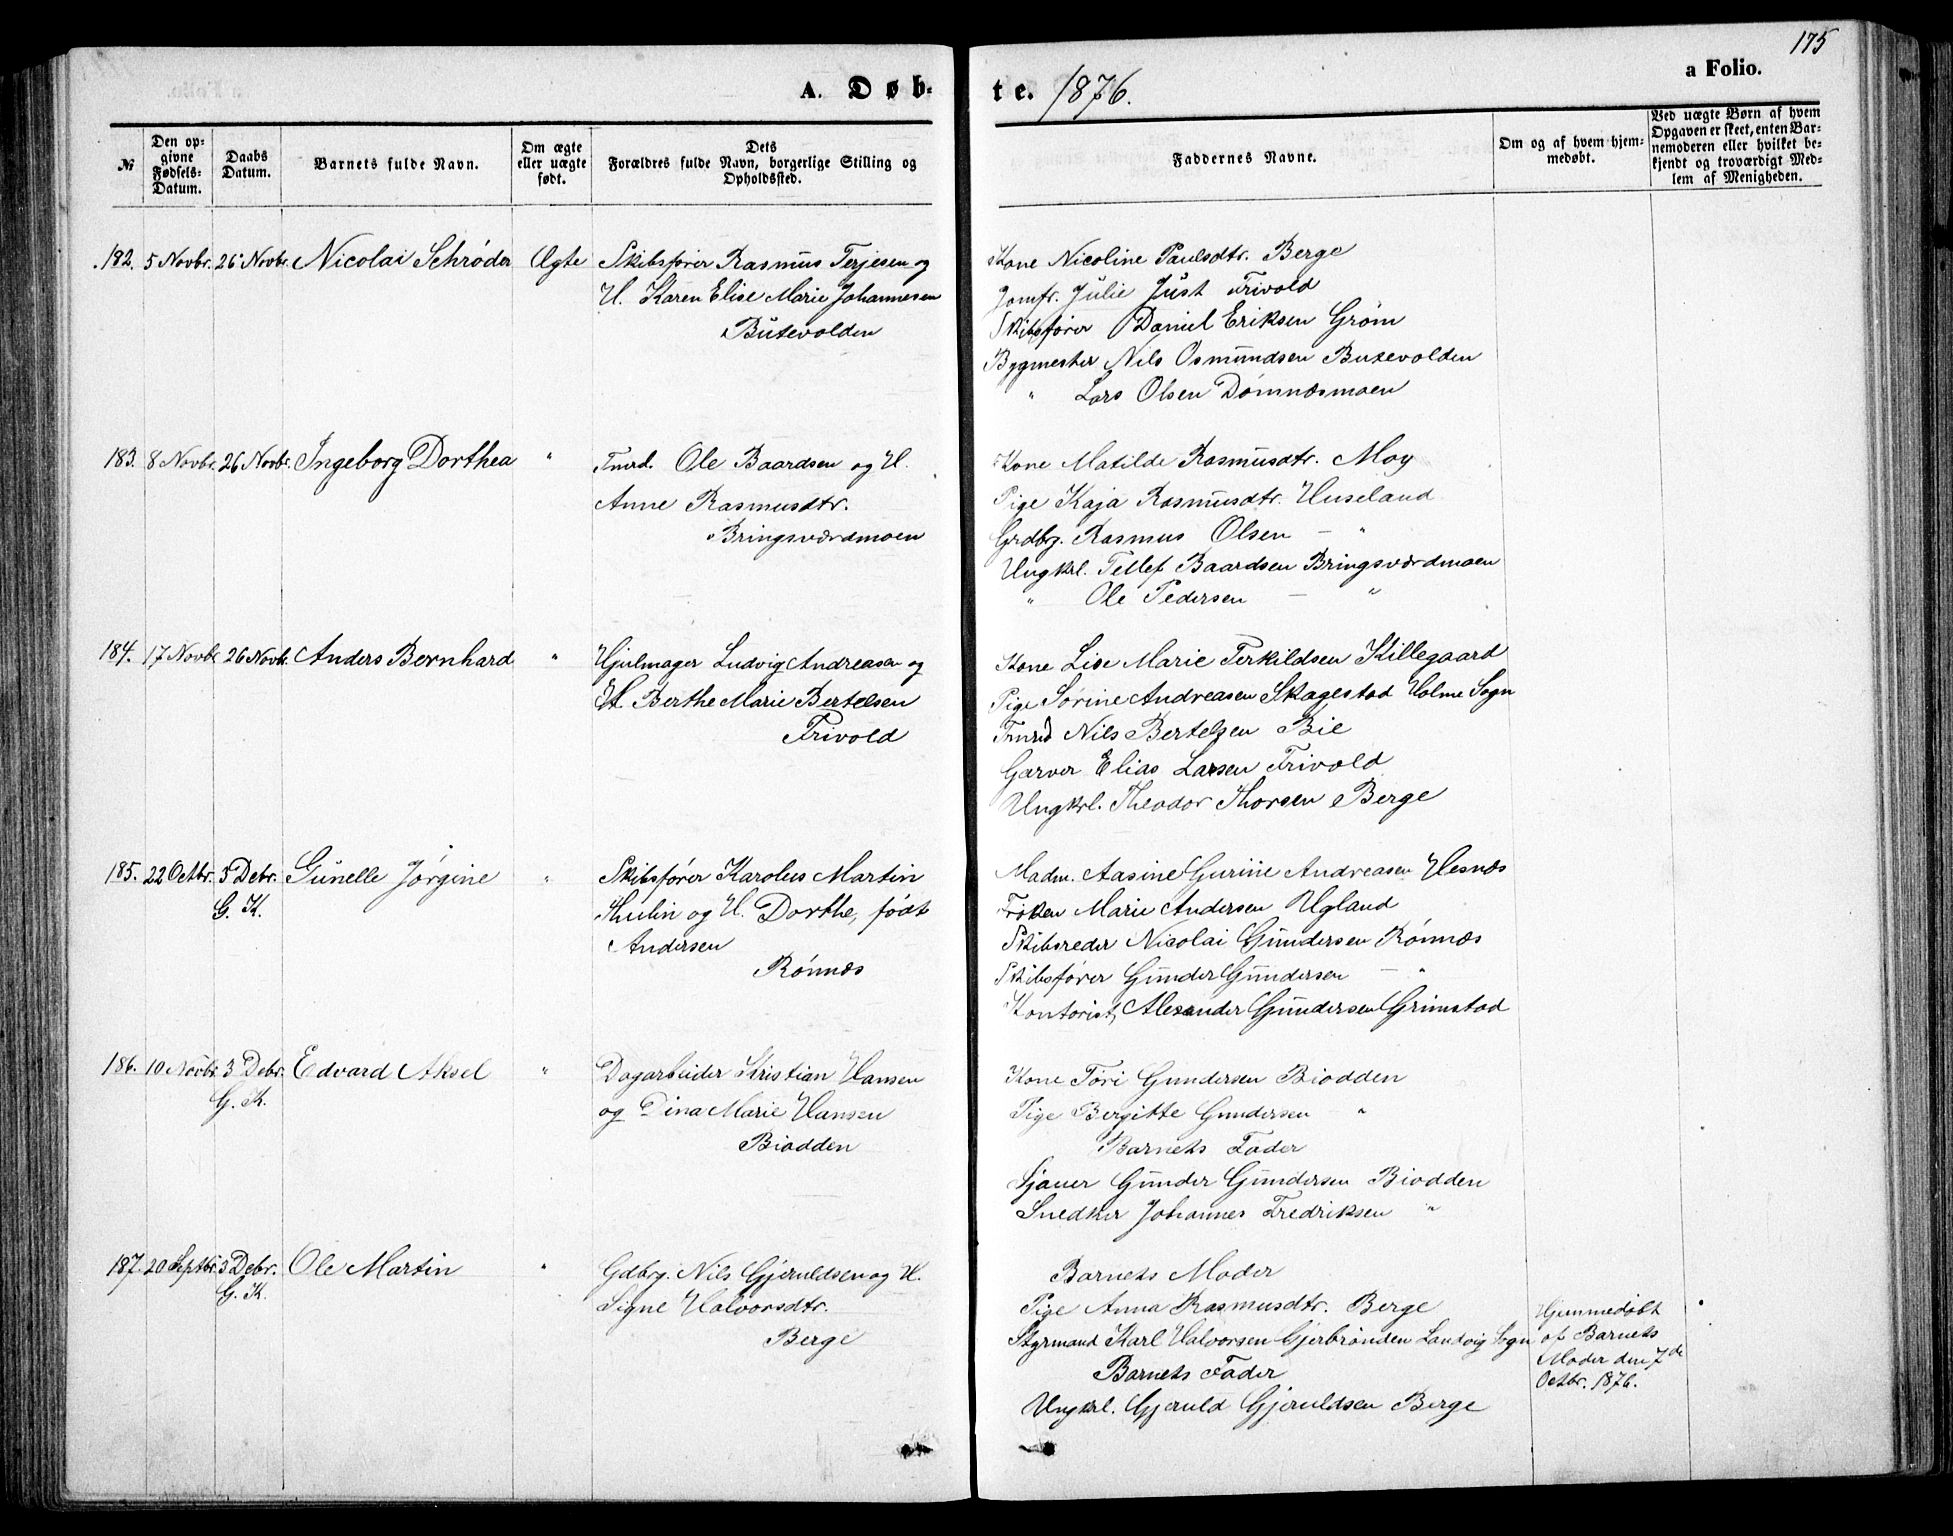 175
A. Døb-
te. 1876.
a Folio.
№
Den op-
givne
Fødsels-
Datum.
Daabs
Datum.
Barnets fulde Navn.
Om ægte
eller uægte
født.
Dets
Forældres fulde Navn, borgerlige Stilling og
Opholdssted.
Faddernes Navne.
Om og af hvem hjem-
medøbt.
Ved uægte Børn af hvem
Opgaven er skeet, enten Bar-
nemoderen eller hvilket be-
kjendt og troværdigt Med-
lem af Menigheden.
182. 5 Novbr. 26 Novbr. Nicolai Schrøder Ægte
Skibsfører Rasmus Terjesen og
H. Karen Elise Marie Johannesen
Busevolden
Kone Nicoline Paulsdtr. Berge
Jomfr. Julie Just Frivold
Skibsfører Daniel Eriksen Grøm
Bygmester Nils Osmundsen Busevolden
" Lars Olsen Dømnæsmoen
183. 8 Novbr. 26 Novbr. Ingeborg Dorthea "
Inrd. Ole Baardsen og H.
Anne Rasmusdtr.
Bringsværdmoen
Kone Matilde Rasmusdtr. Moy
Pige Kaja Rasmusdtr. Huseland
Grdbrg. Rasmus Olsen — "
Ungkrl. Tellef Baardsen Bringsværdmoen
" Ole Pedersen — "
184. 17 Novbr. 26 Novbr. Anders Bernhard "
Hjulmager Ludvig Andreasen og
H. Berthe Marie Bertelsen
Frivold
Kone Lise Marie Terkildsen Killegaard
Pige Sørine Andreasen Skagestad Holme Sogn
Inrd Nils Bertelsen Bie
Garver Elias Larsen Frivold
Ungkrl. Theodor Thorsen Berge
185. 22 Octbr. 3 Debr. Gunelle Jørgine "
G. K.
Skibsfører Karolus Martin
Thulin og H. Dorthe, født
Andersen
Rønnæs
Madm. Aasine Gurine Andreasen Hesnæs
Frøken Marie Andersen Ugland
Skibsreder Nicolai Gundersen Rønnæs
Skibsfører Gunder Gundersen — "
Kontorist, Alexander Gundersen Grimstad
186. 10 Novbr. 3 Debr. Edvard Aksel "
G. K.
Dagarbeider Kristian Hansen
og Dina Marie Hansen
Biodden
Kone Tøri Gundersen Biodden
Pige Bergitte Gundersen "
Barnets Fader
Sjauer Gunder Gundersen Biodden
Snedker Johannes Fredriksen "
187. 20 Septbr. 3 Debr. Ole Martin "
G. K.
Gdbrg. Nils Gjeruldsen og H.
Signe Halvorsdtr.
Berge
Barnets Moder
Pige Anna Rasmusdtr. Berge
Styrmand Karl Halvorsen Gjerbrønden Landvig Sogn
Barnets Fader
Ungkrl. Gjeruld Gjeruldsen Berge
Hjemmedøbt
af Barnets
Moder den 7de
Octbr. 1876.